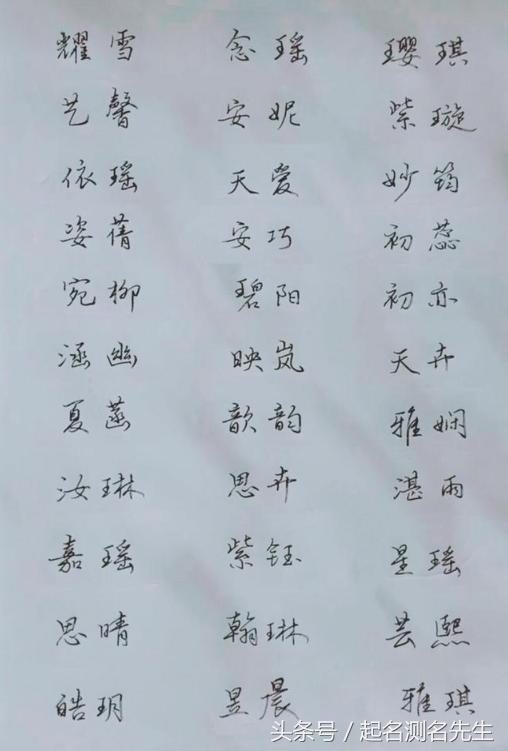 耀雪 念瑶 璎琪
艺馨 安妮 紫璇
依瑶 天爱 妙筠
姿蒨 安巧 初蕊
宛柳 碧阳 初亦
涵幽 映岚 天卉
夏菡 歆韵 雅娴
汝琳 思卉 湛雨
嘉瑶 紫钰 星瑶
思晴 翰琳 芸熙
皓玥 昱晨 雅琪
头条号/起名测名先生